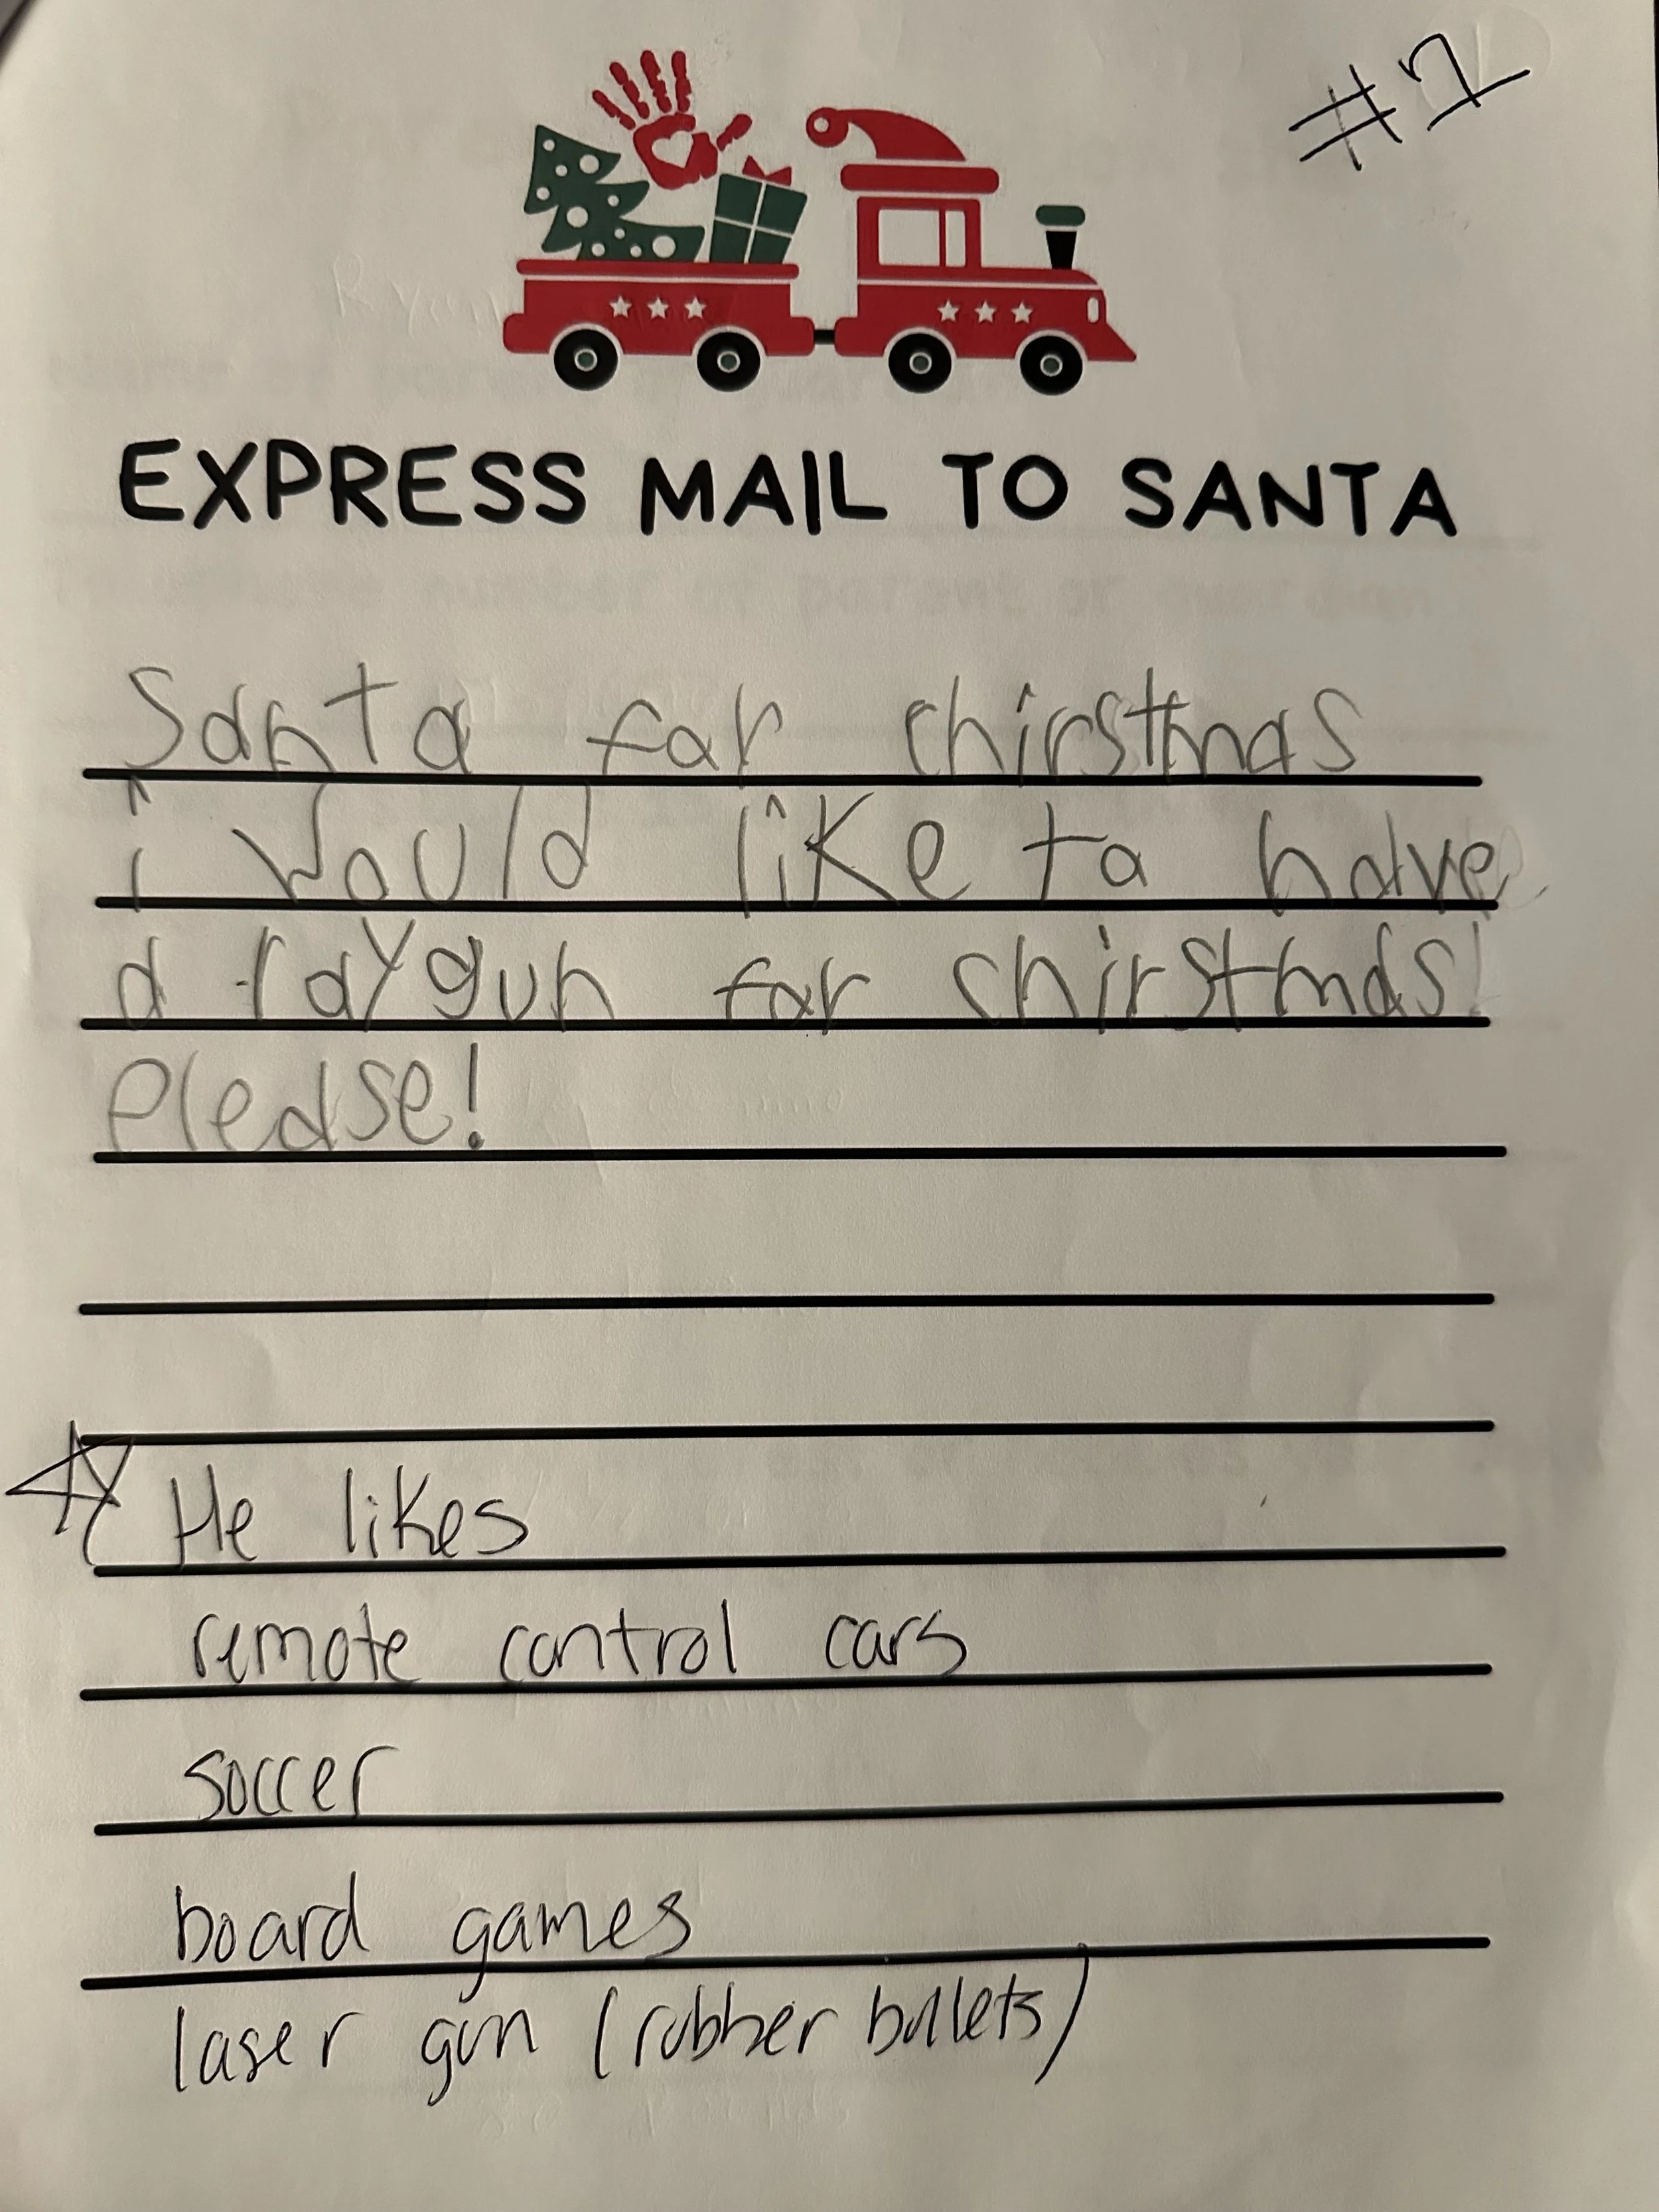 #2
EXPRESS MAIL TO SANTA
Santa far chirstmas
i would like ta have
a raygun far chirstmas!
please!
He likes
remote control cars
soccer
board games
laser gun (rubber bullets)